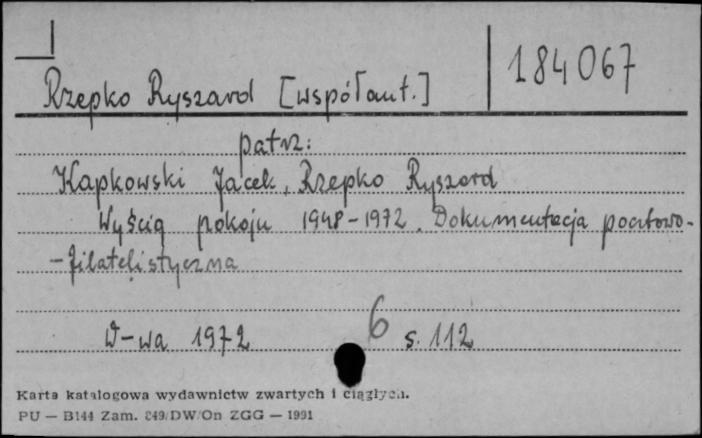 184067
Rzepko Ryszard [współaut.]
patrz:
Kapkowski Jacek, Rzepko Ryszard
Wyścig pokoju 1948-1972. Dokumentacja pocztowo-
-filatelistyczna
W-wa 1972 6 s. 112
Karta katalogowa wydawnictw zwartych i ciągłych.
PU — B144 Zam. 849/DW/On ZGG — 1991